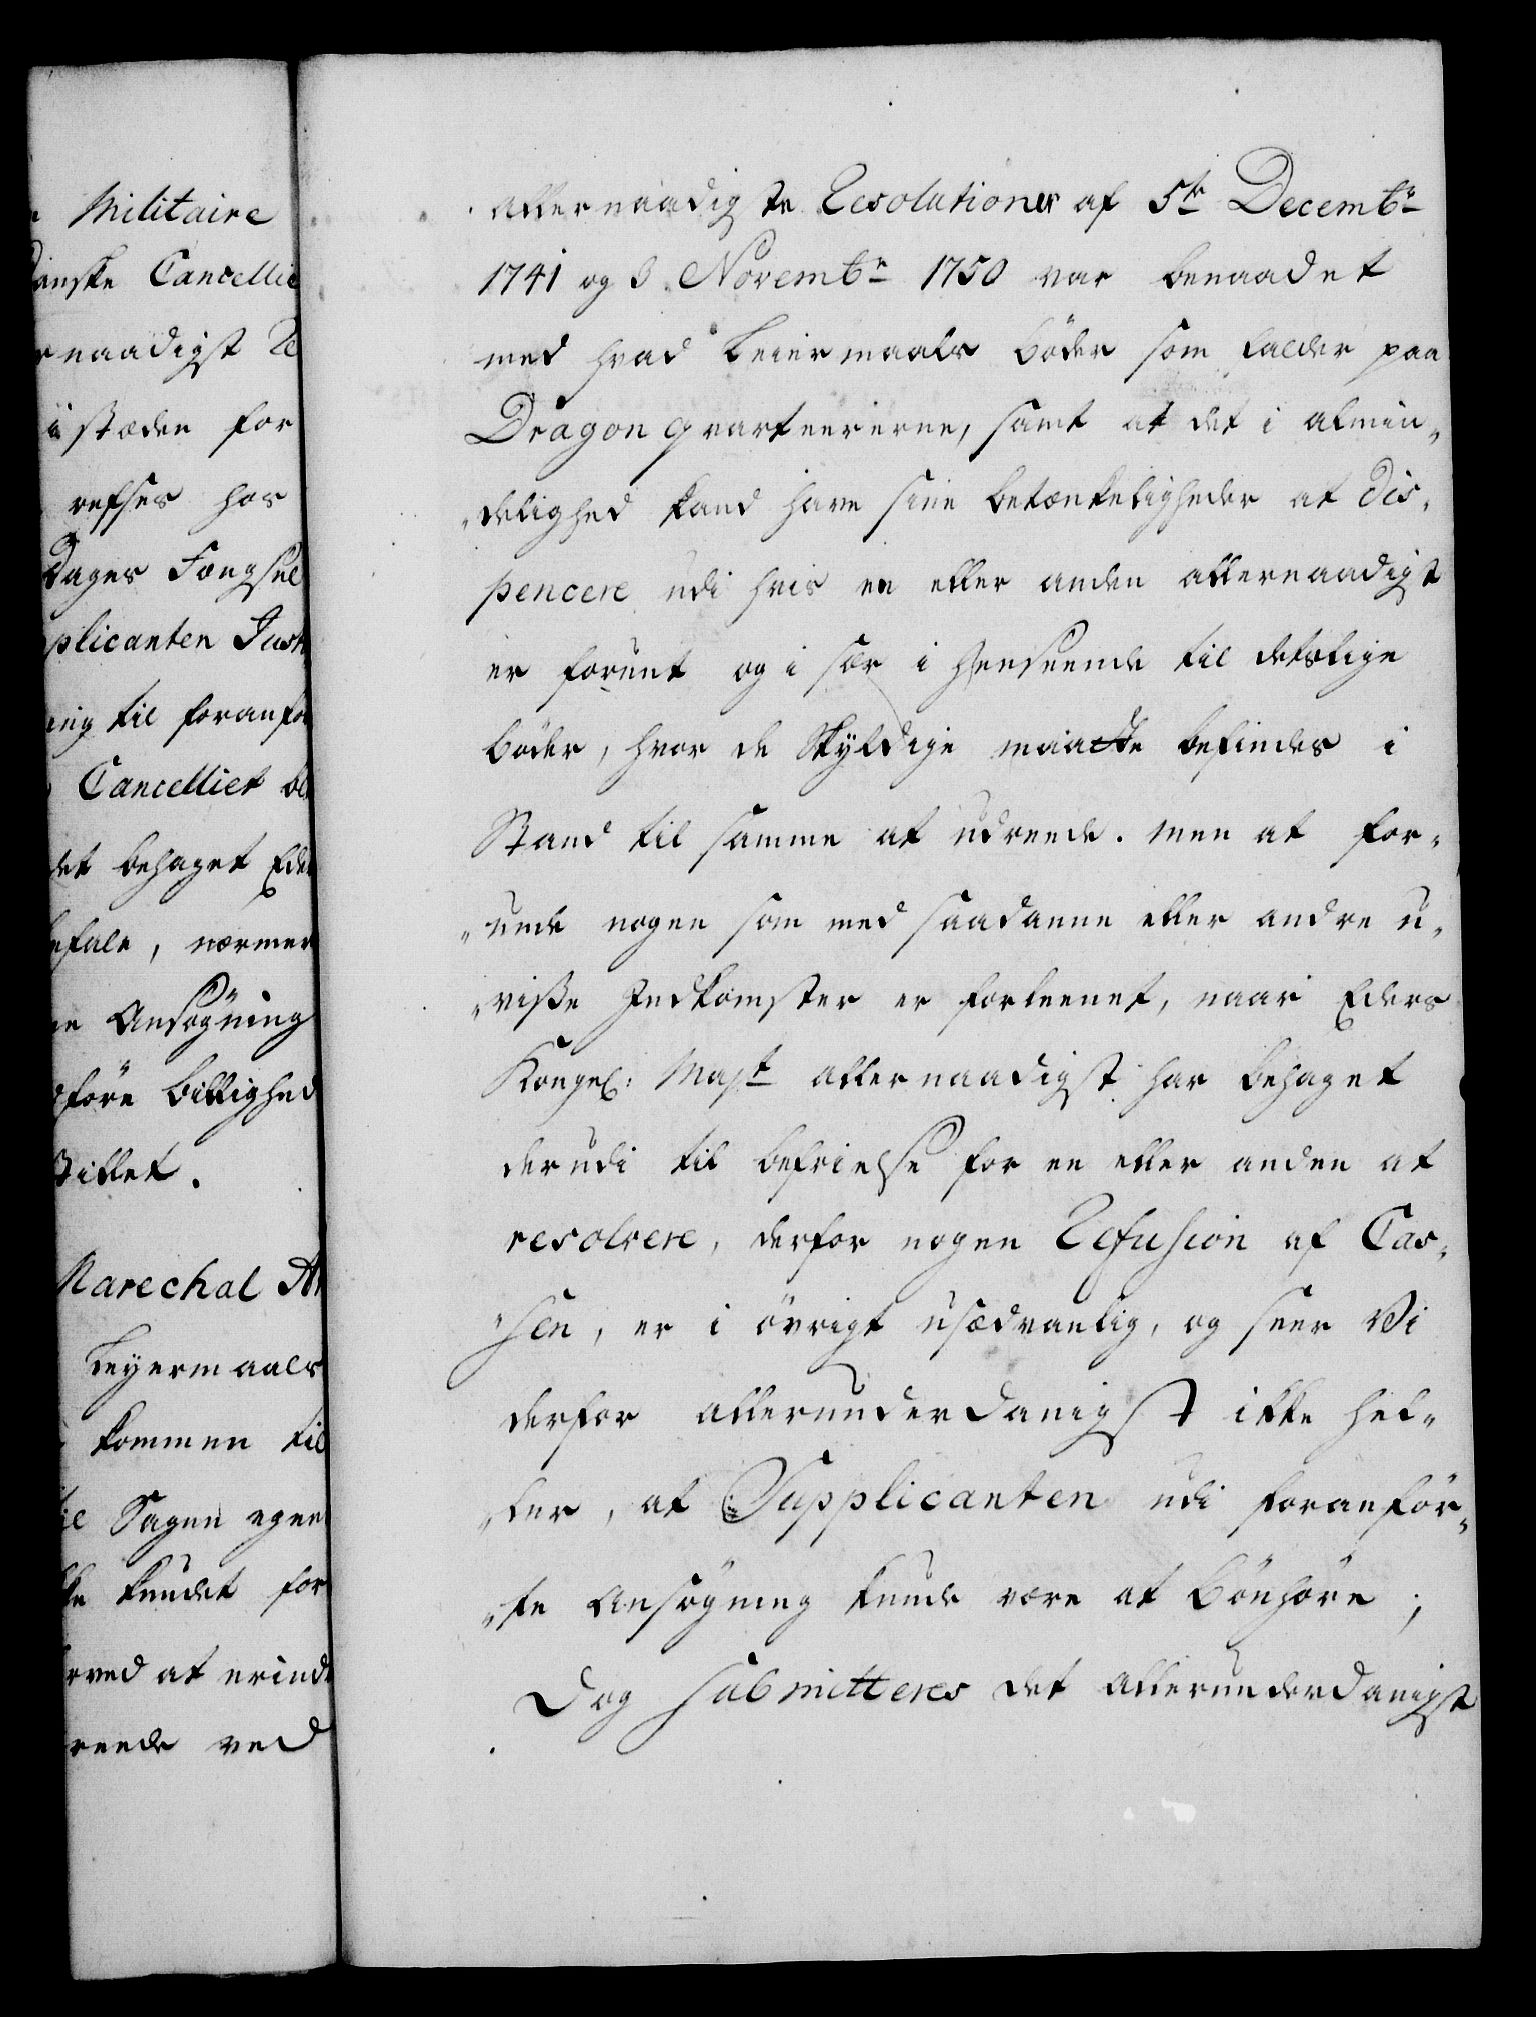 Militaire
anske Cancellie
naadigst Re
i stæden for
refses hos
Dages Fængsel
plicanten Just
ing til foranfø
Cancelliet be
det behaget Ede
befale, nærmer
Ansøgning
føre billighed
billet.
Marechal A
Leyermaals
kommen til
Sagen egen
kundet for
rved at erind
reede ved
allernaadigste Resolutioner af 5te Decembr
1741 og 3 Novembr 1750 var benaadet
med hvad Leiermaals bøder som falder paa
Dragon qvarteererne, samt at det i almin„
„delighed kand have sine betænkeligheder at dis„
pencere udi hvis en eller anden allernaadigst
er forunt og i sær i Henseende til deslige
bøder, hvor de Skyldige maatte befindes i
Stand til samme at udreede. men at for„
„unde nogen som med saadanne eller andre u„
„visse Indkomster er forleenet, naar Eders
Kongel: Majt allernaadigst har behaget
derudi til befrielse for en eller anden at
resolvere, derfor nogen Refusion af Cas„
„sen, er i øvrigt usædvanlig, og seer Vi
derfor allerunderdanigst ikke hel„
„ler, at Supplicanten udi foranfør„
„te Ansøgning kunde være at bønhøre;
Dog submitteres det allerunderdanigst